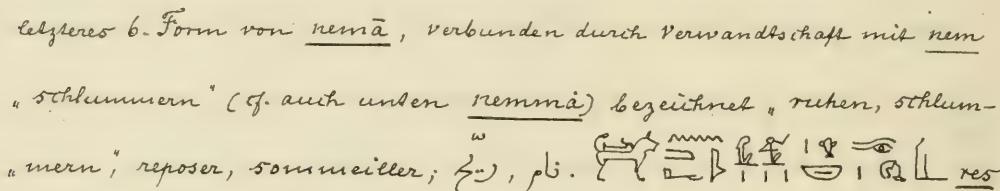 letzteres 6. Form von nemā, verbunden durch Verwandtschaft mit nem
„schlummern“ (cf. auch unten nemmȧ) bezeichnet „ruhen, schlum-
„mern“, reposer, sommeiller; , نام. res